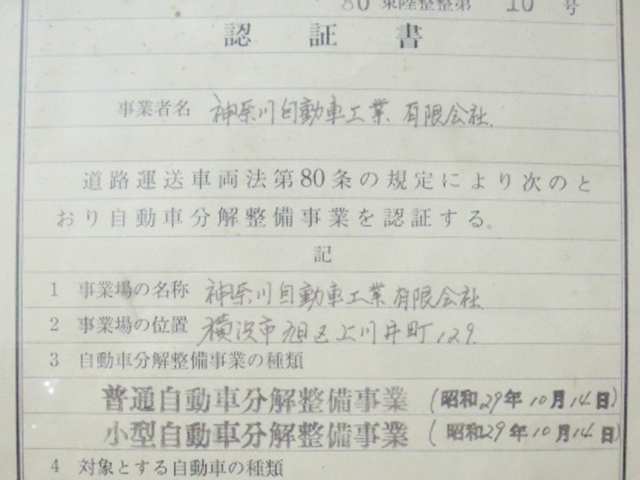 80 東陸整整第 10 号
認証書
事業者名 神奈川自動車工業 有限会社
道路運送車両法第80条の規定により次のと
おり自動車分解整備事業を認証する。
記
1 事業場の名称 神奈川自動車工業有限会社
2 事業場の位置 横浜市旭区上川井町129
3 自動車分解整備事業の種類
普通自動車分解整備事業 (昭和29年10月14日)
小型自動車分解整備事業 (昭和29年10月14日)
4 対象とする自動車の種類